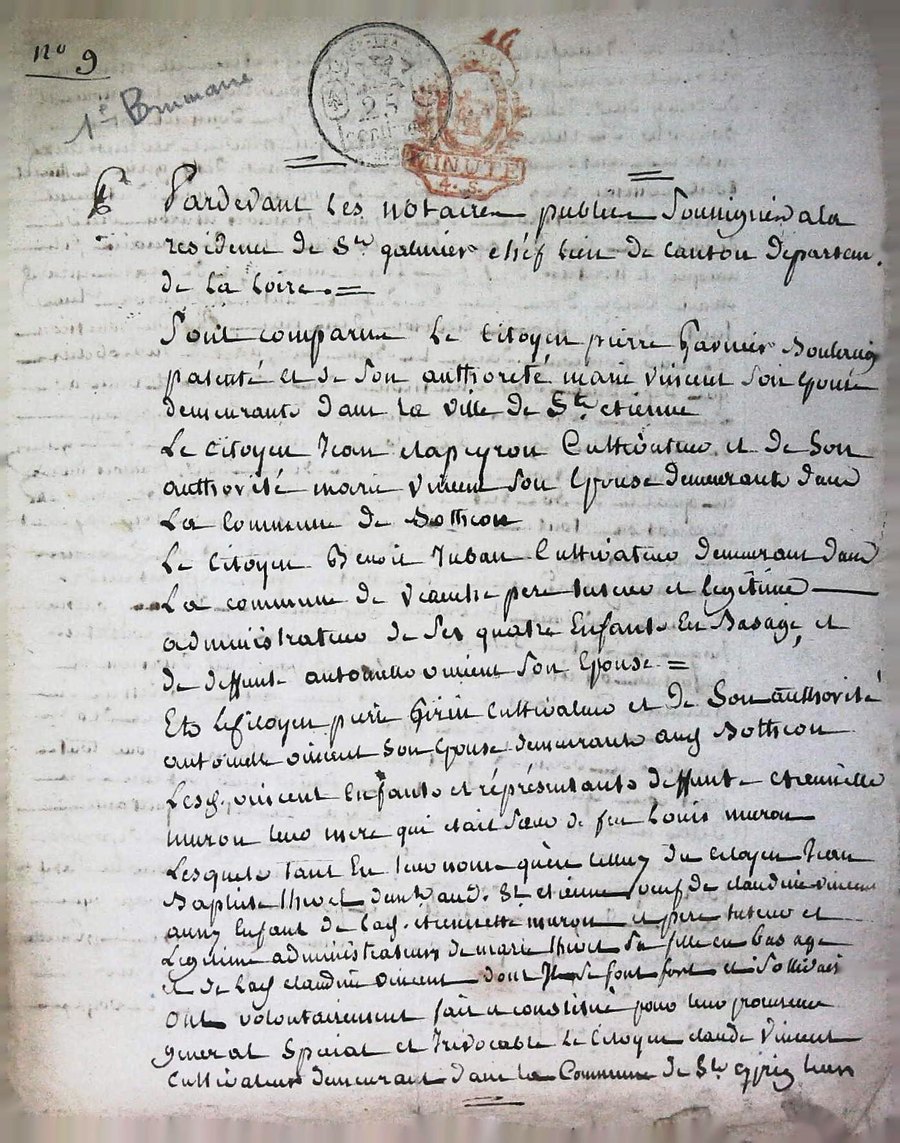 nº 9
1er Brumaire
25
centimes
MINUTE
4. S.
Pardevant Les notaires publics Soussignés a la
residence de St galmier chéf lieu de canton départem.
de la Loire. =
Sont comparus Le Citoyen pierre Garnier Boulanger
patenté et de Son authorité marie vincent Son Epouse
demeurants dans La ville de St etienne
Le Citoyen Jean clapeyron Cultivateur et de Son
authorité marie vincent Son Epouse demeurants dans
La Commune de Botheon
Le Citoyen Benoit Juban Cultivateur demeurant dans
La commune de veauche pere tuteur et legitime
administrateur de Ses quatre Enfants En Basage, et
de deffunte antoinette vincent Son Epouse =
Et Le Citoyen pierre Girin Cultivateur et de Son authorité
antoinette vincent Son Epouse demeurants aud Botheon
Lesd. vincent Enfants et répréséntants deffunte etiennette
muron leur mere qui etait Sœur de feu Louis muron
Lesquels tant En leur nom qu'en celluy du citoyen Jean
Baptiste thivel demt aud. St etienne veuf de claudine vincent
aussy Enfant de lad. etiennette muron et pere tuteur et
Legitime administrateur de marie thivel Sa fille en bas age
et de Lad claudine vincent dont Ils Se font fort et Sollidair
Ont volontairement fait et constitué pour leur procureur
general Special et Irrévocable Le Citoyen claude Vincent
Cultivateur demeurant dans la Commune de St